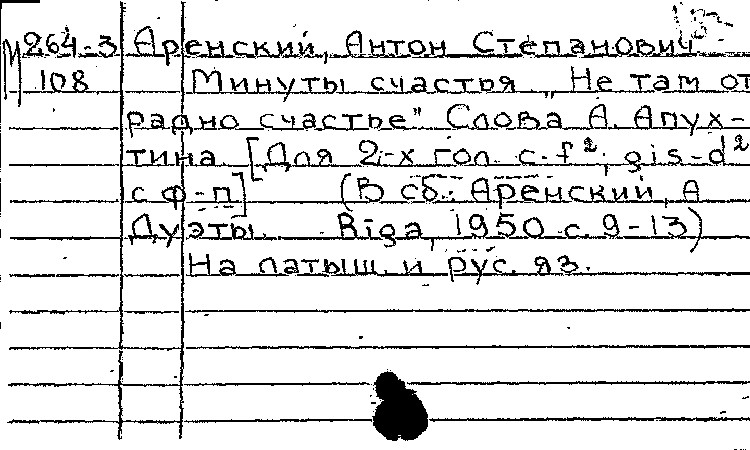 М264-3 Аренский, Антон Степанович
108 Минуты счастья „Не там от
радно счастье" Слова А. Апух-
тина [Для 2-х гол. c-f², gis-d²
с ф-п] (В сб.: Аренский, А
Дуэты. Rīga, 1950 с. 9-13)
На латыш. и рус. яз.